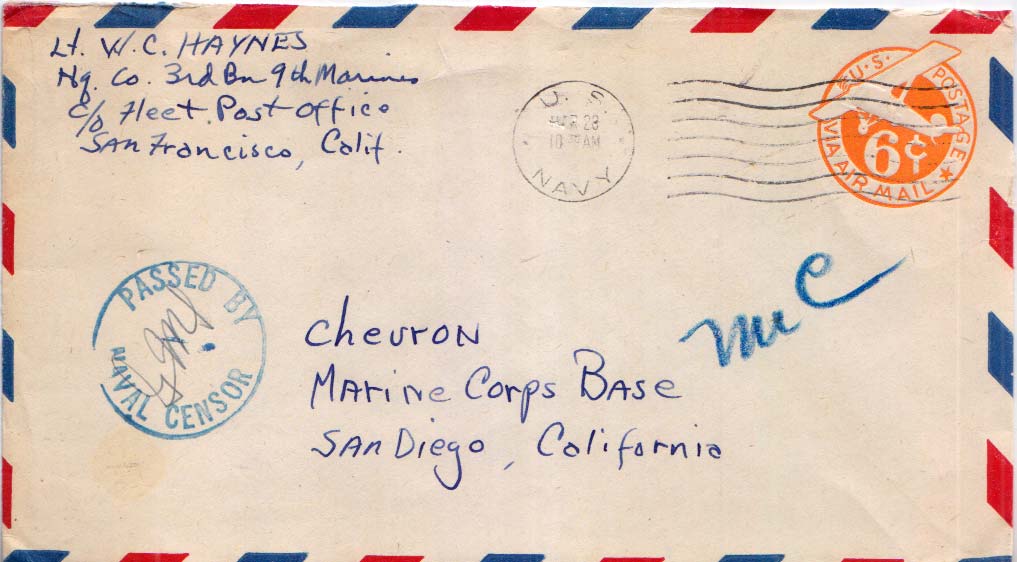 Lt. W. C. HAYNES
Hq. Co. 3rd Bn 9th Marines
c/o Fleet Post Office
San Francisco, Calif.
U. S.
23
10 AM
NAVY
U.S. POSTAGE
6¢
VIA AIR MAIL
PASSED BY
NAVAL CENSOR
Chevron
Marine Corps Base
San Diego, California